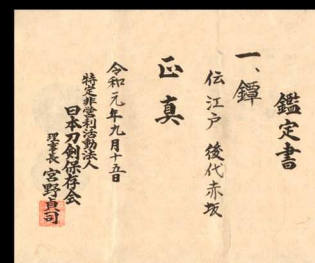 鑑定書
一、鐔
伝江戸後代赤坂
正真
令和元年九月十五日
特定非営利活動法人
日本刀剣保存会
理事長 宮野貞司